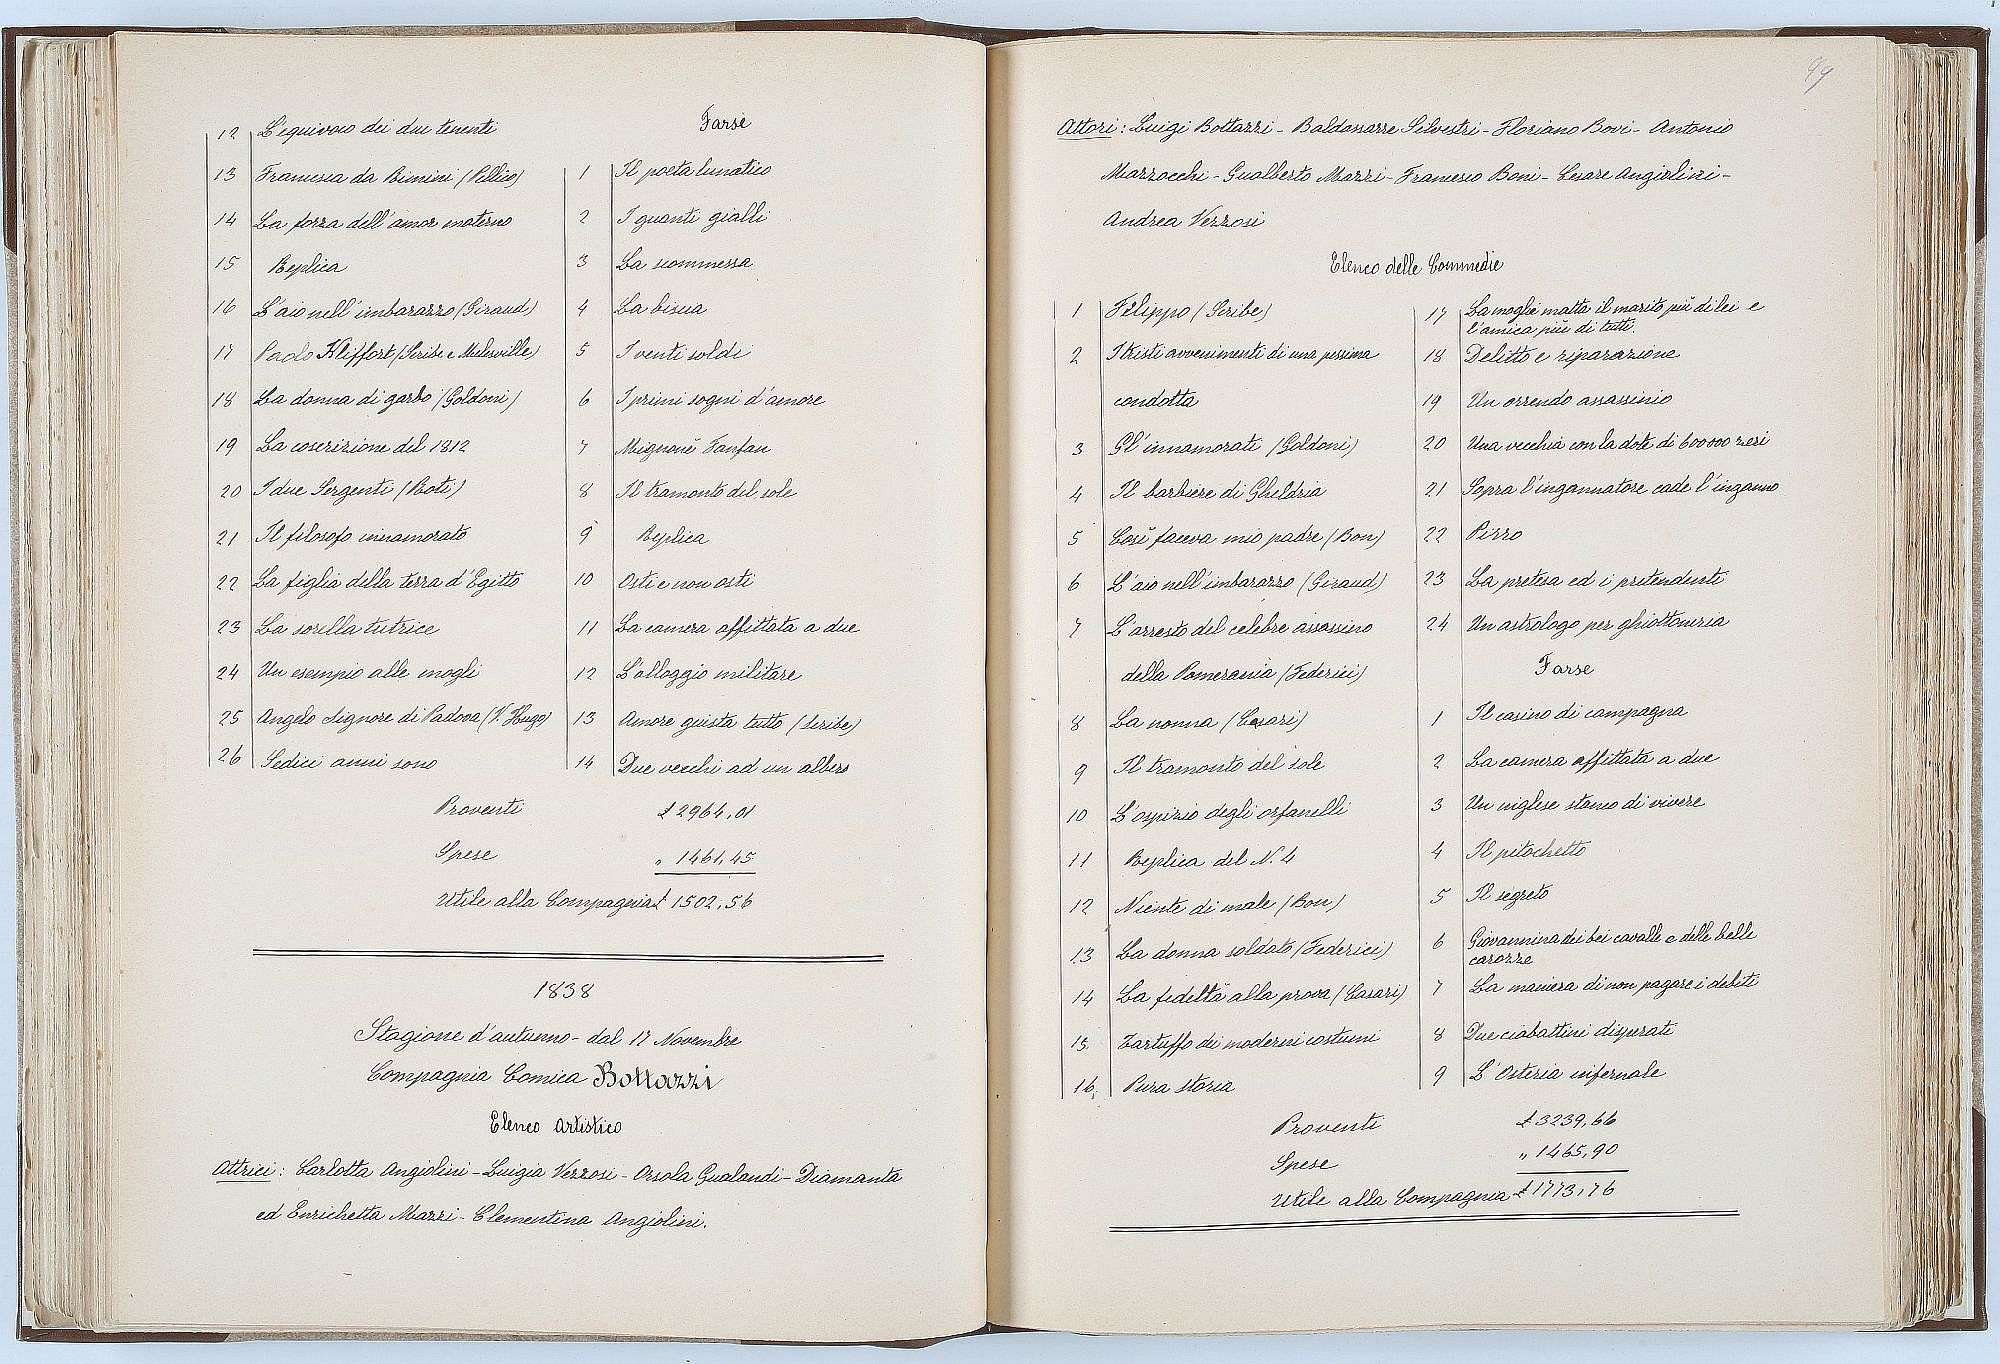 12 L'equivoco dei due tenenti
13 Francesca da Rimini (Pellico)
14 La forza dell'amor materno
15 Replica
16 L'aio nell'imbarazzo (Giraud)
17 Paolo Kliffort (Scribe e Melesville)
18 La donna di garbo (Goldoni)
19 La coscrizione del 1812
20 I due Sergenti (Roti)
21 Il filosofo innamorato
22 La figlia della terra d'Egitto
23 La sorella tutrice
24 Un esempio alle mogli
25 Angelo Signore di Padova (V. Hugo)
26 Sedici anni sono
Farse
1 Il poeta lunatico
2 I guanti gialli
3 La scommessa
4 La bisca
5 I venti soldi
6 I primi sogni d'amore
7 Mignonè Fanfan
8 Il tramonto del sole
9 Replica
10 Osti e non osti
11 La camera affittata a due
12 L'alloggio militare
13 Amore guista tutto (Scribe)
14 Due vecchi ad un albero
Proventi £ 2964,01
Spese „ 1461,45
Utile alla Compagnia £ 1502,56
1838
Stagione d'autunno - dal 17 Novembre
Compagnia Comica Bottazzi
Elenco Artistico
Attrici: Carlotta Angiolini - Luigia Vezzosi - Orsola Gualandi - Diamanta
ed Enrichetta Mazzi - Clementina Angiolini.
99
Attori: Luigi Bottazzi - Baldassarre Silvestri - Floriano Bovi - Antonio
Mazzocchi - Gualberto Mazzi - Francesco Boni - Cesare Angiolini -
Andrea Vezzosi
Elenco delle Commedie
1 Filippo (Scribe)
2 I tristi avvenimenti di una pessima
condotta
3 Gl'innamorati (Goldoni)
4 Il barbiere di Gheldria
5 Così faceva mio padre (Bon)
6 L'aio nell'imbarazzo (Giraud)
7 L'arresto del celebre assassino
della Pomerania (Federici)
8 La nonna (Casari)
9 Il tramonto del sole
10 L'ospizio degli orfanelli
11 Replica del N. 4
12 Niente di male (Bon)
13 La donna soldato (Federici)
14 La fedeltà alla prova (Casari)
15 Tartuffo dei moderni costumi
16. Pura storia
17 La moglie matta il marito più di lei e
l'amica più di tutti.
18 Delitto e riparazione
19 Un orrendo assassinio
20 Una vecchia con la dote di 600000 zeri
21 Sopra l'ingannatore cade l'inganno
22 Pirro
23 La pretesa ed i pretendenti
24 Un astrologo per ghiottoneria
Farse
1 Il casino di campagna
2 La camera affittata a due
3 Un inglese stanco di vivere
4 Il pitochetto
5 Il segreto
6 Giovannina dei bei cavalli e delle belle
carozze
7 La maniera di non pagare i debiti
8 Due ciabattini disperati
9 L'Osteria infernale
Proventi £ 3239,66
Spese „ 1465,90
Utile alla Compagnia £ 1773,76